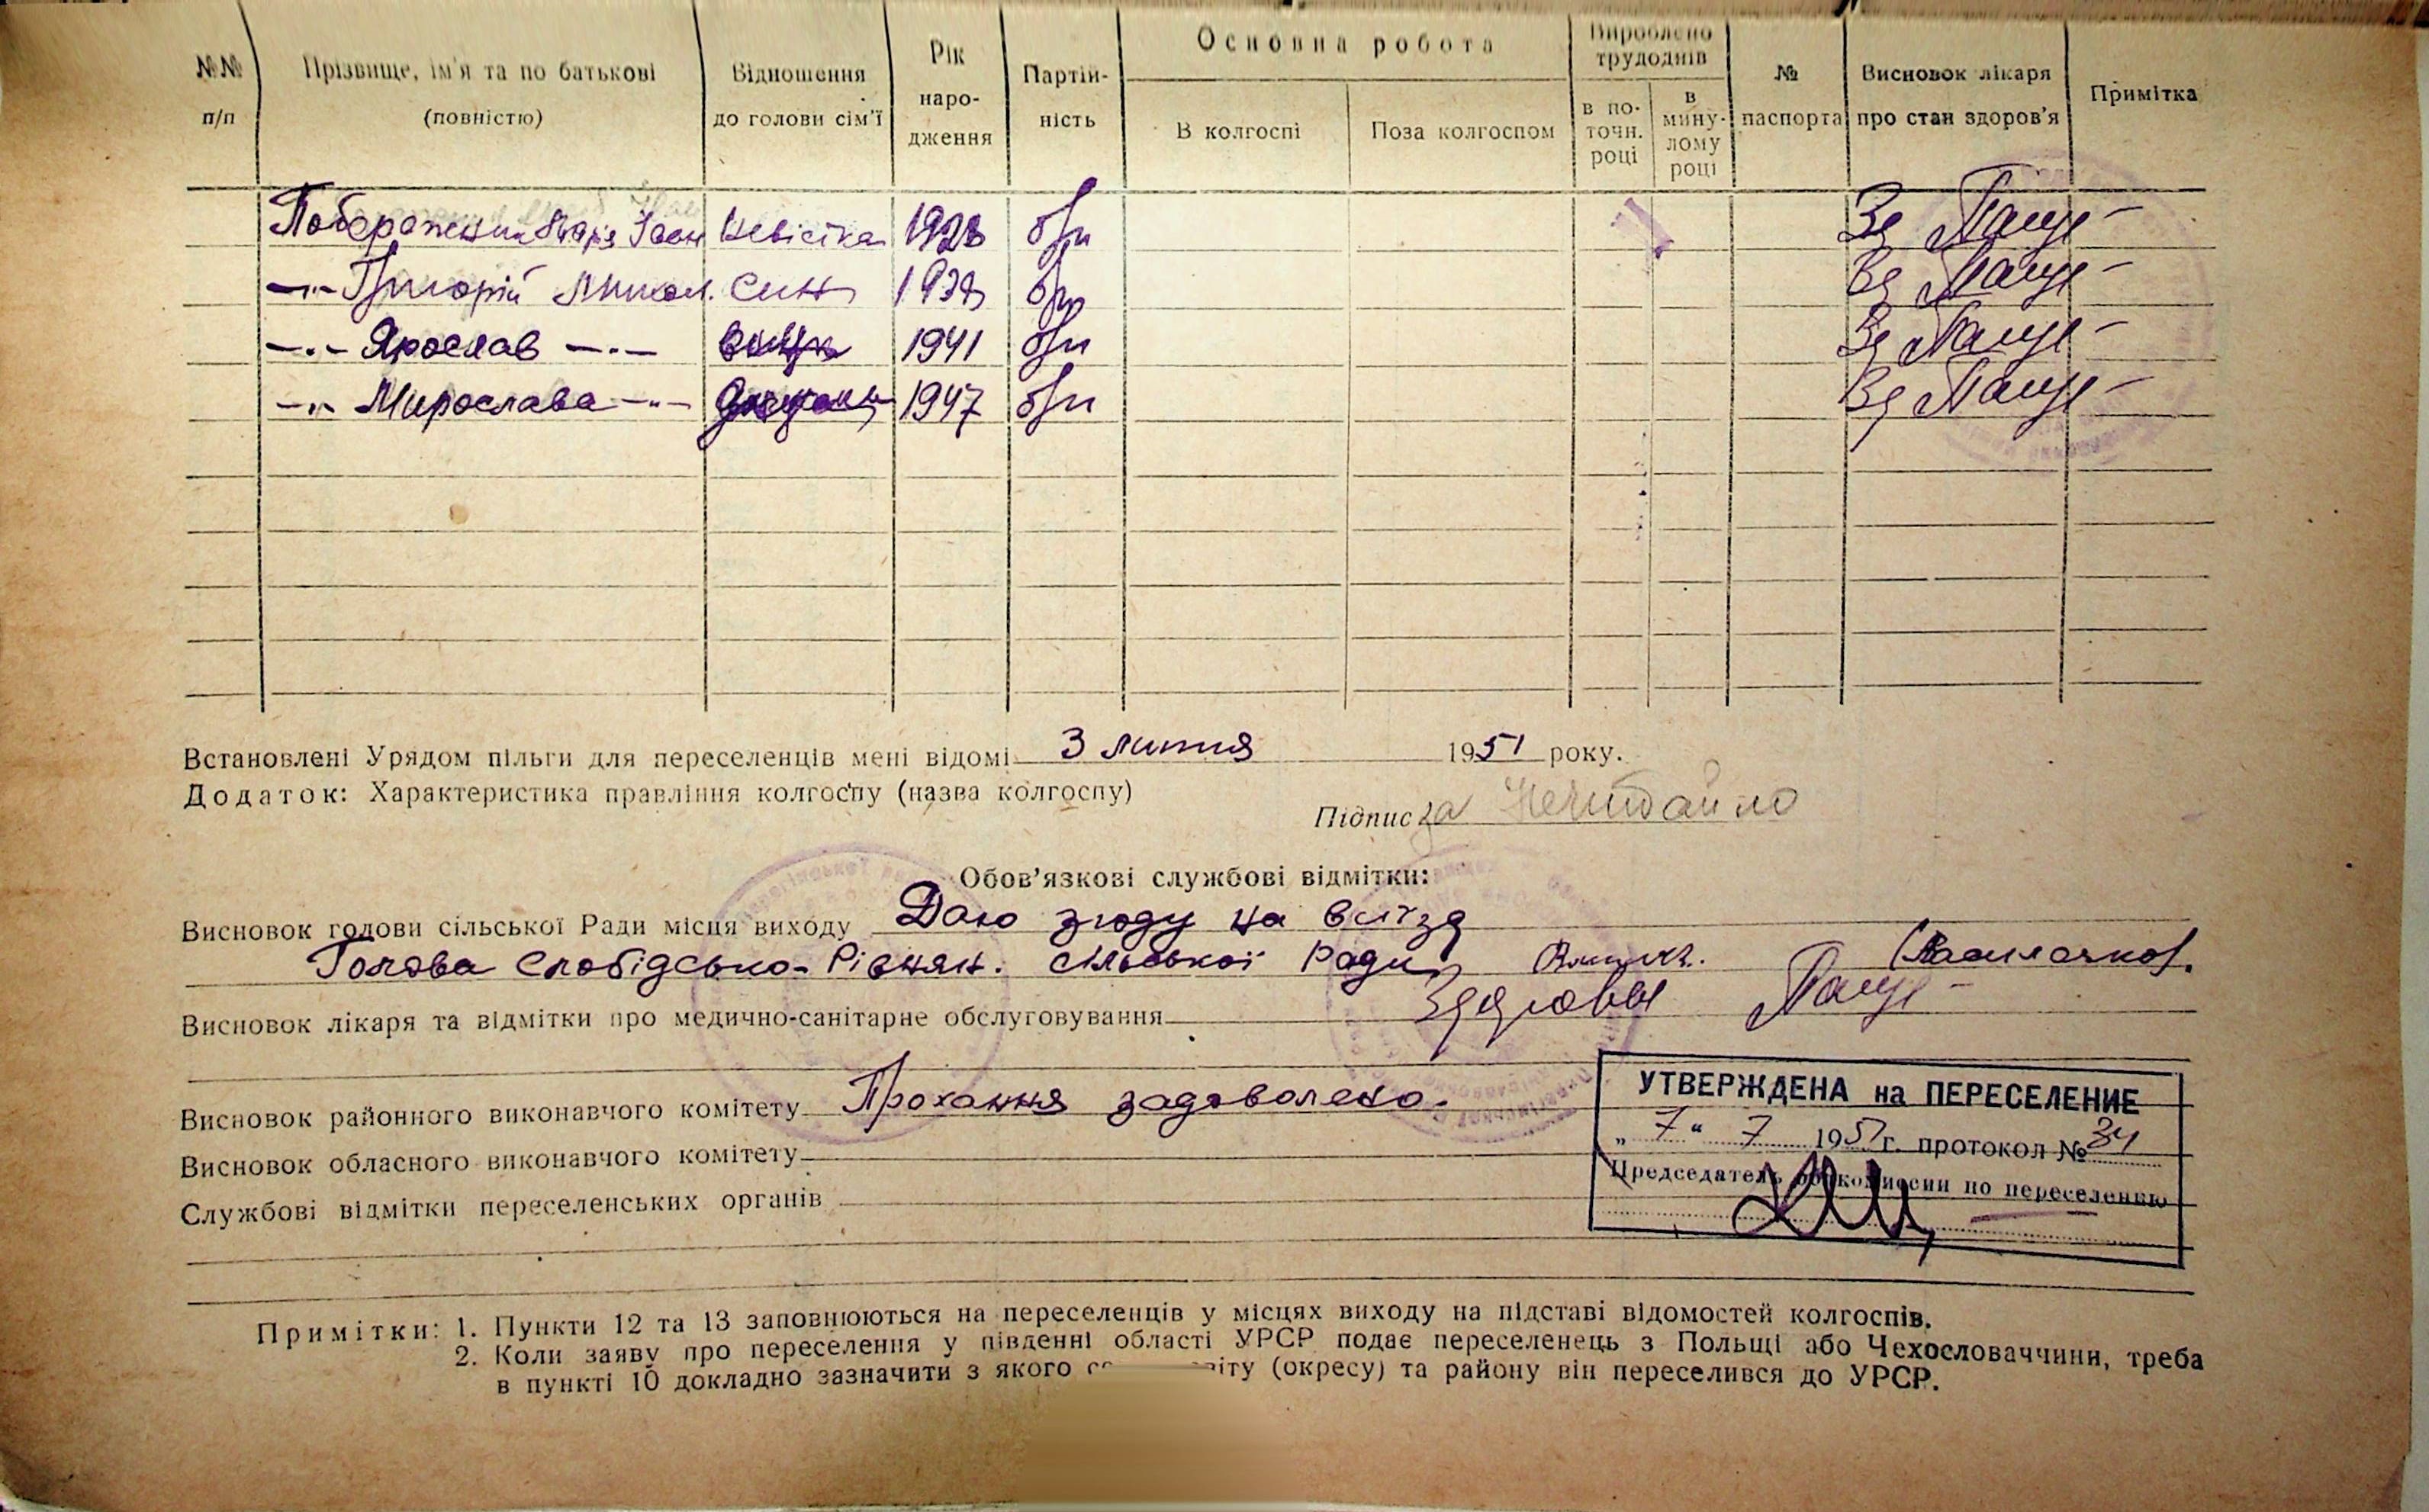 №№ п/п
Прізвище, ім'я та по батькові (повністю)
Відношення до голови сім'ї
Рік народження
Партійність
Основна робота
В колгоспі
Поза колгоспом
Вироблено трудоднів
в поточн. році
в минулому році
№ паспорта
Висновок лікаря про стан здоров'я
Примітка
Побережник Марія Іван Невістка 1928 б/п Зд
-"- Григорій Микол. син 193 б/п Зд
-"- Ярослав -"- 1941 б/п Зд
-"- Мирослава -"- 1947 б/п Зд
Встановлені Урядом пільги для переселенців мені відомі 3 липня 1951 року.
Додаток: Характеристика правління колгоспу (назва колгоспу)
Підпис за Нечитайло
Обов'язкові службові відмітки:
Висновок голови сільської Ради місця виходу Даю згоду на виїзд
Голова Слобідсько-Рівнян. сільської Ради
Висновок лікаря та відмітки про медично-санітарне обслуговування Здоровы
Висновок районного виконавчого комітету Прохання задоволено.
Висновок обласного виконавчого комітету
Службові відмітки переселенських органів
УТВЕРЖДЕНА на ПЕРЕСЕЛЕНИЕ
„7" 7 1951 г. протокол № 34
Председатель комиссии по переселению
Примітки: 1. Пункти 12 та 13 заповнюються на переселенців у місцях виходу на підставі відомостей колгоспів.
2. Коли заяву про переселення у південні області УРСР подає переселенець з Польщі або Чехословаччини, треба
в пункті 10 докладно зазначити з якого (окресу) та району він переселився до УРСР.